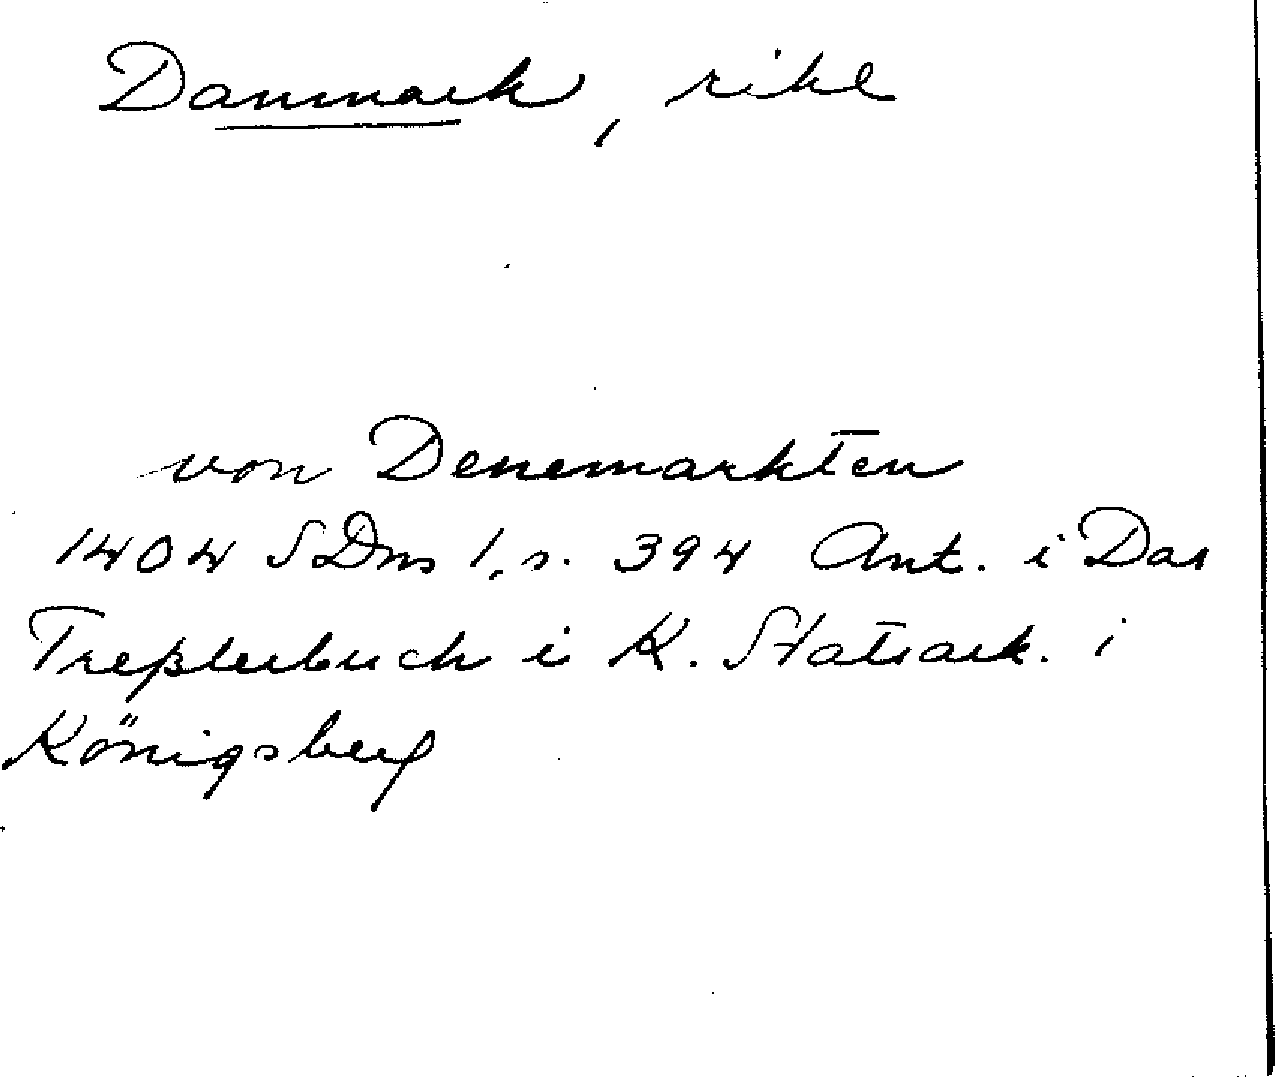 Danmark, rike
von Denemarkten
1404 SDns 1, s. 394 Ant. i Das
Treßlerbuch i K. Statsark. i
Königsberg